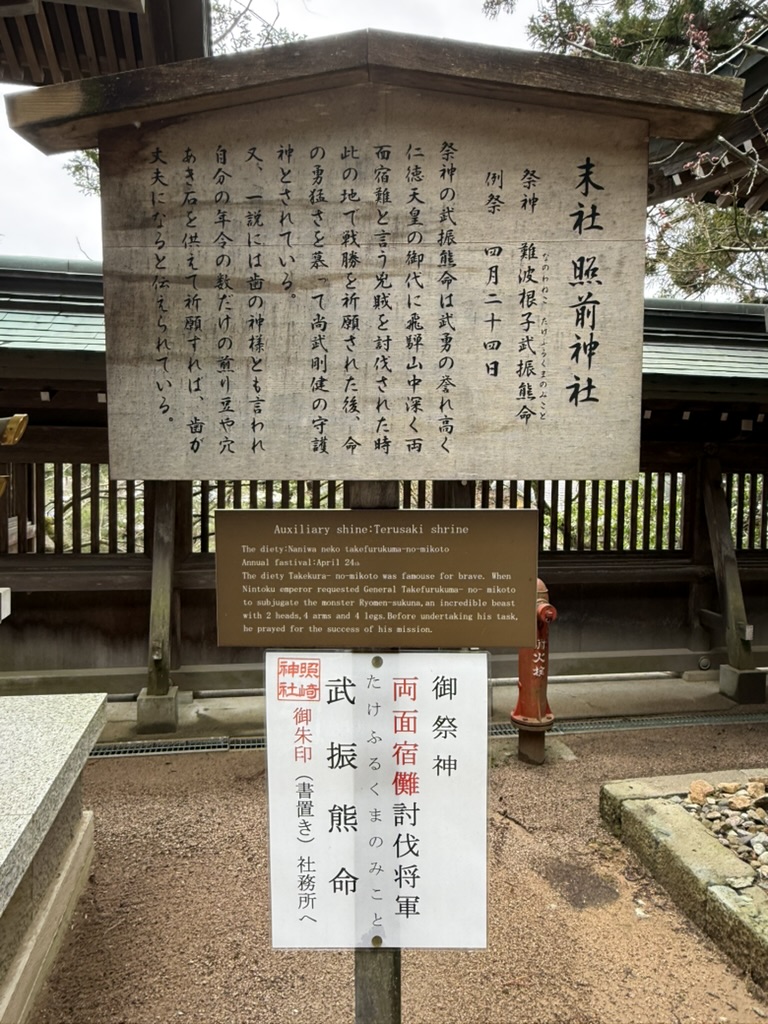 末社 照前神社
祭神 難波根子武振熊命
なのわねこ たけふるくまのみこと
例祭 四月二十四日
祭神の武振熊命は武勇の誉れ高く
仁徳天皇の御代に飛騨山中深く両
面宿難と言う兇賊を討伐された時
此の地で戦勝を祈願された後、命
の勇猛さを慕って尚武剛健の守護
神とされている。
又、一説には歯の神様とも言われ
自分の年令の数だけの煎り豆や穴
あき石を供えて祈願すれば、歯が
丈夫になると伝えられている。
Auxiliary shine:Terusaki shrine
The diety:Naniwa neko takefurukuma-no-mikoto
Annual fastival:April 24th
The diety Takekura- no-mikoto was famouse for brave. When
Nintoku emperor requested General Takefurukuma- no- mikoto
to subjugate the monster Ryomen-sukuna,an incredible beast
with 2 heads,4 arms and 4 legs.Before undertaking his task,
he prayed for the success of his mission.
御祭神
両面宿儺討伐将軍
たけふるくまのみこと
武振熊命
照崎
神社
御朱印（書置き）社務所へ
消火栓